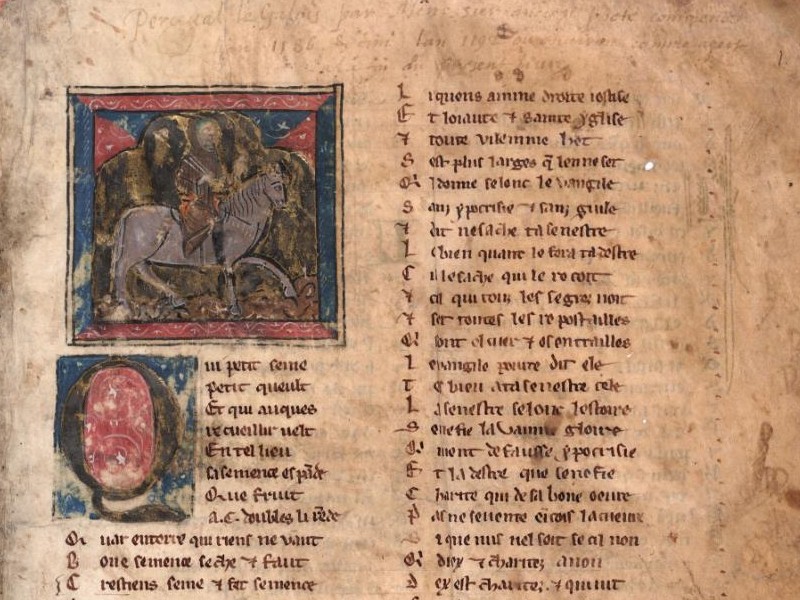 Perceval le Galois par
lan 1186 & fini lan 1190
Qui petit seme
petit queult
Et qui auques
recueillir uelt
En tel lieu
sa semence espãde
Que fruit
.A.C. doubles li rẽde
Quar enterre qui riens ne vaut
Bone semence seche ⁊ faut
Crestiens seme ⁊ fet semence
Li quens aimme droite iostise
Et loiaute ⁊ sainte yglise
⁊ toute vilennie het
Sest plus larges q̃ lenne set
Qil donne selonc le vangile
Sanz ypocrisie ⁊ sanz guile
⁊ dit ne sache ta senestre
Le bien quant le fera ta destre
Cil le sache qui le recoit
⁊ cil qui touz les segrez uoit
⁊ set toutes les repostailles
Qui sont el cuer ⁊ es entrailles
Leuangile poure dit ele
Tes bien a ta senestre cele
La senestre selonc lestoire
Senefie la vainne gloire
Qui uient de fausse ypocrisie
Et la destre que senefie
Charite qui de sa bone oeure
Pas ne se uente eicois la cueure
Si que nus nel soit se cil non
Qui diex ⁊ charitez a non
Diex est charitez. ⁊ qui uit